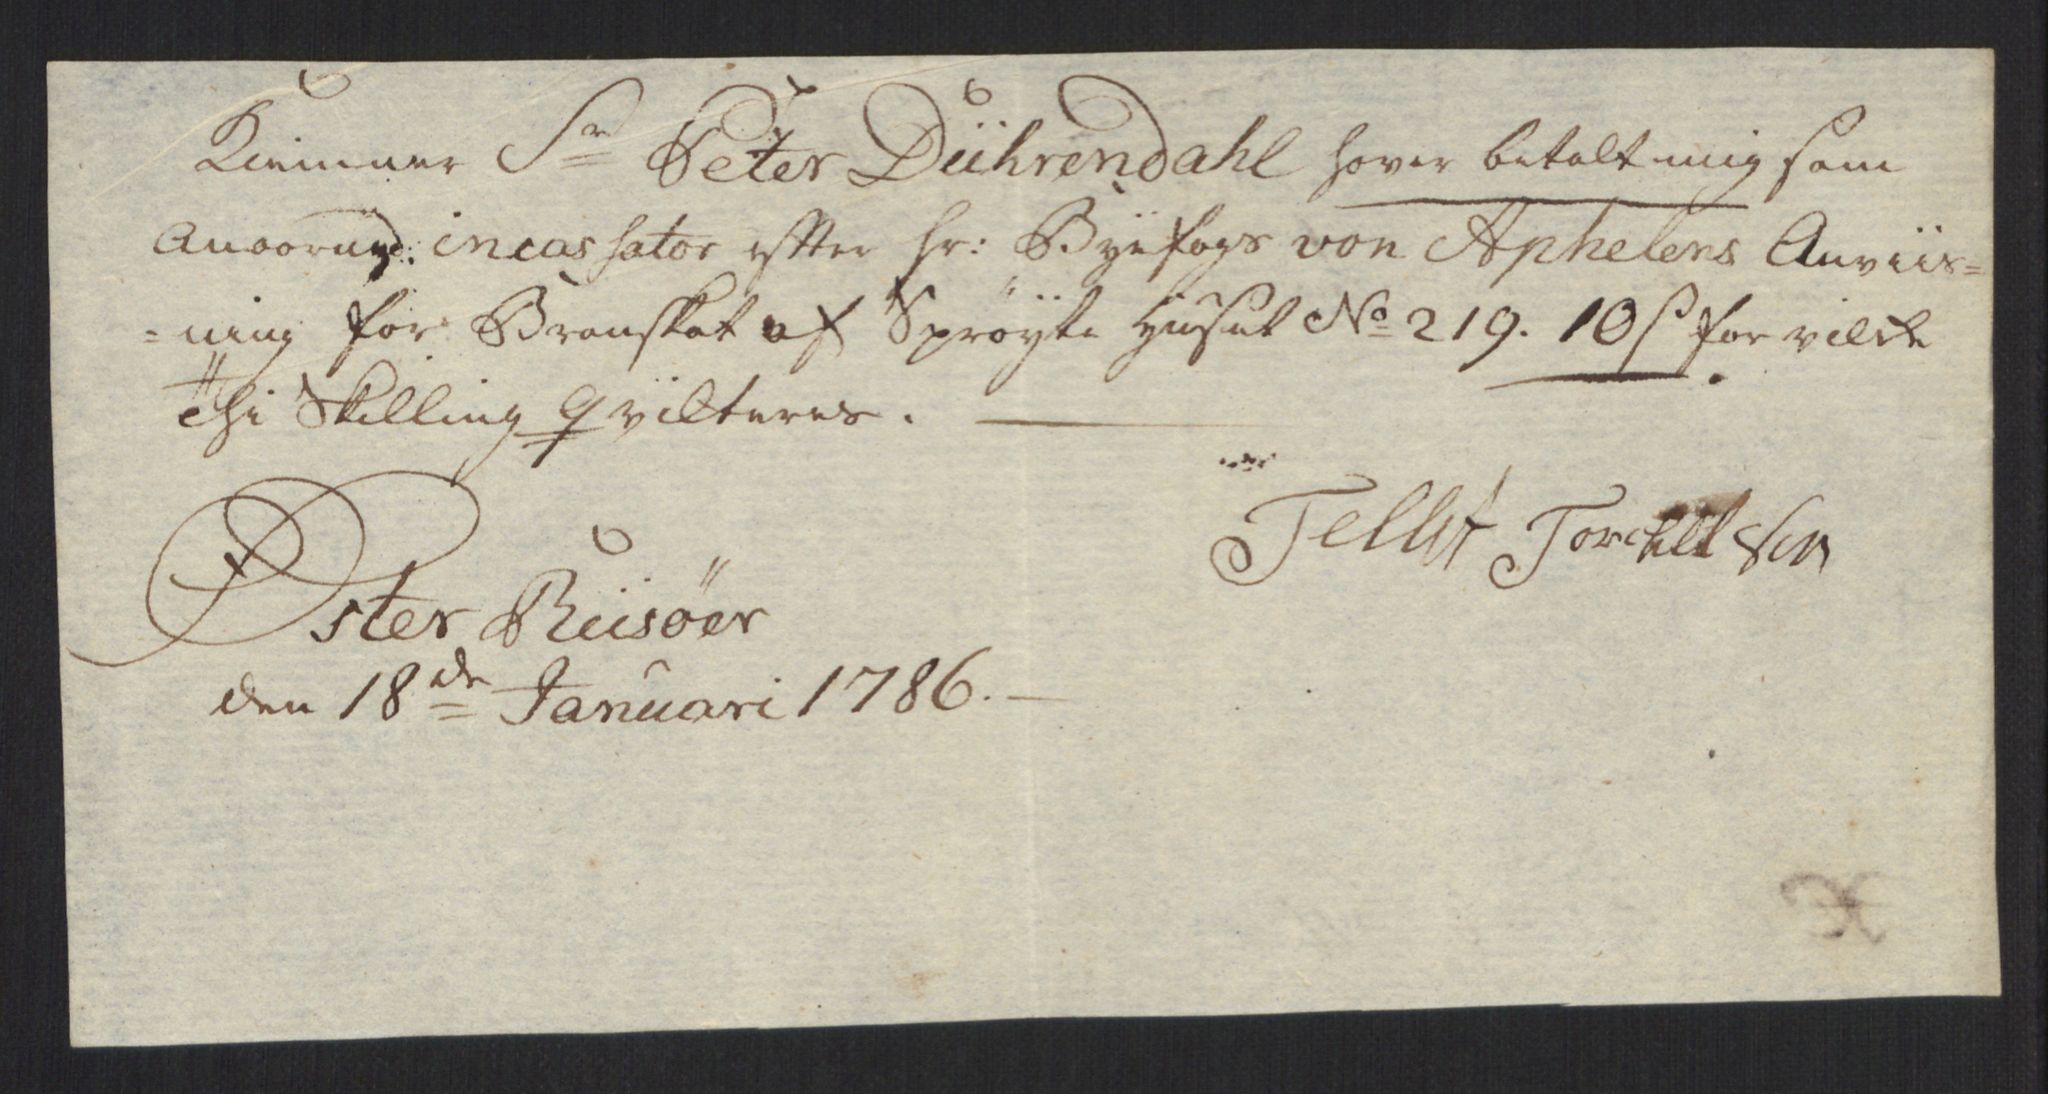 Kiemner Sr Peter Dührendahl haver betalt mig som
Anoorned: incassator efter hr: Byefogs von Aphelens Anviis=
=ning for Branskat af Sprøyte Huset No 219. 10 s for vilke
Thi Skilling qvilteres.
Tellef Torckelsen
Øster Riisöer
den 18de Januari 1786.